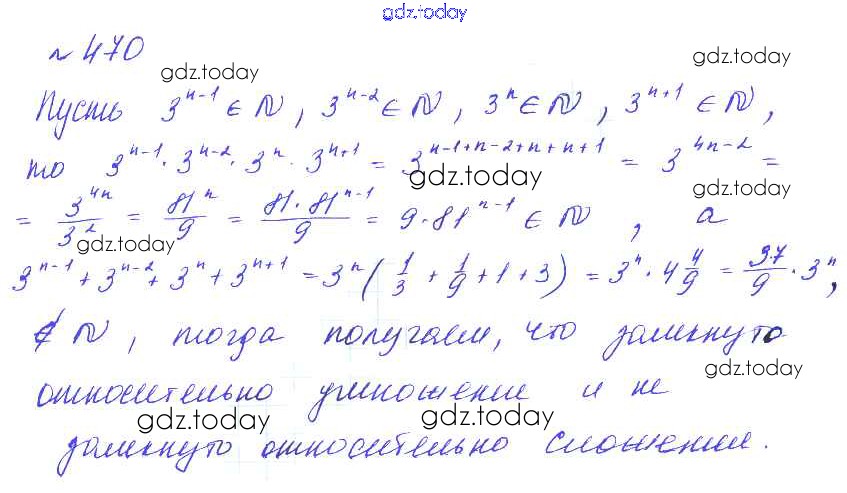 gdz.today
№ 470
gdz.today gdz.today
Пусть 3ⁿ⁻¹ ∈ N, 3ⁿ⁻² ∈ N, 3ⁿ ∈ N, 3ⁿ⁺¹ ∈ N,
то 3ⁿ⁻¹·3ⁿ⁻²·3ⁿ·3ⁿ⁺¹ = 3ⁿ⁻¹⁺ⁿ⁻²⁺ⁿ⁺ⁿ⁺¹ = 3⁴ⁿ⁻² =
gdz.today gdz.today
= 3⁴ⁿ/3² = 81ⁿ/9 = 81·81ⁿ⁻¹/9 = 9·81ⁿ⁻¹ ∈ N, а
gdz.today
3ⁿ⁻¹ + 3ⁿ⁻² + 3ⁿ + 3ⁿ⁺¹ = 3ⁿ (1/3 + 1/9 + 1 + 3) = 3ⁿ · 4 4/9 = 37/9 · 3ⁿ,
∉ N, тогда получаем, что замкнуто
gdz.today
относительно умножение и не
gdz.today gdz.today
замкнуто относительно сложения.